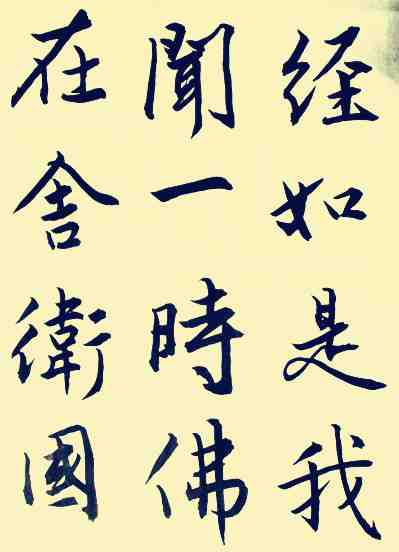 経如是我
聞一時佛
在舎衛國